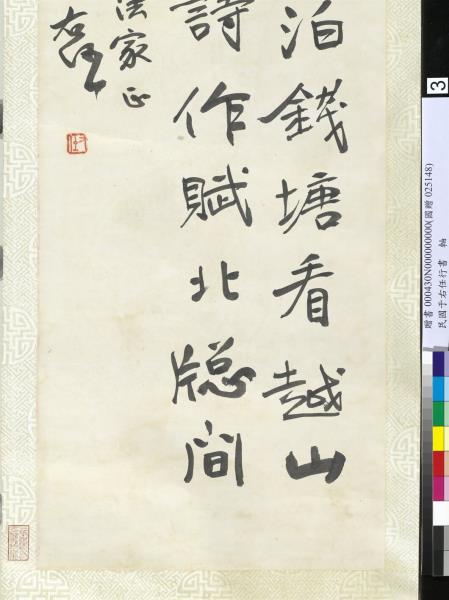 泊錢塘看越山
詩作賦北牕间
法家正
右任
贈書 000430N000000000(國贈 025148)
民國于右任行書 軸
3